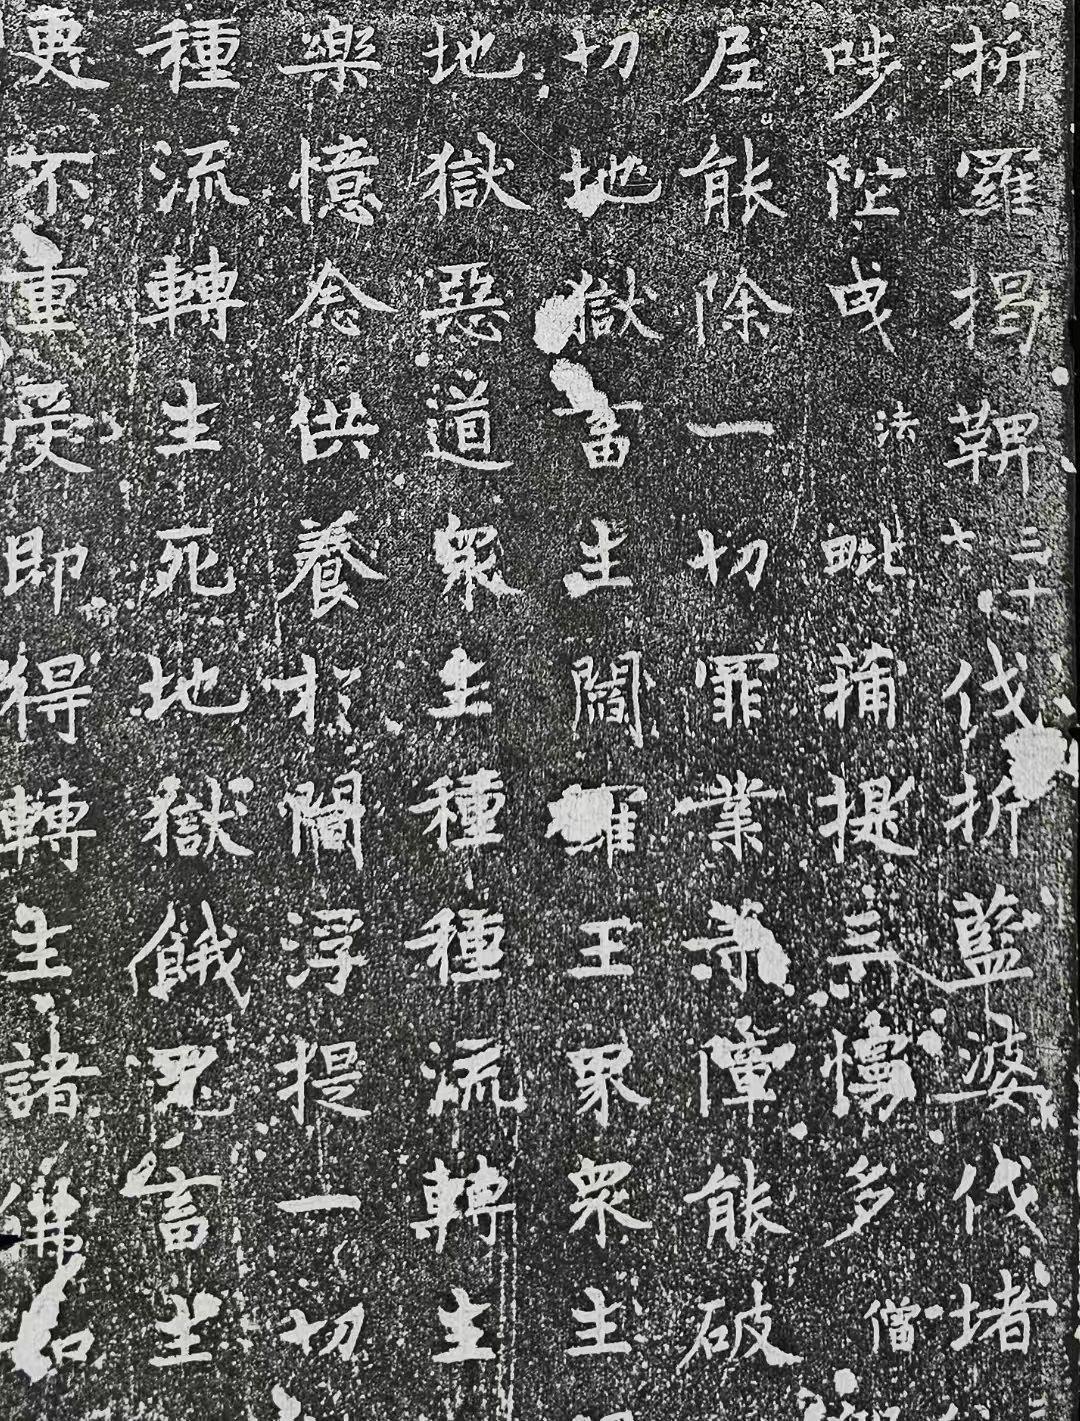 折羅揭鞞三十七伐折藍婆伐堵
陀曳法毗菩提三慕多僧
尼能除一切罪業等障能破
切地獄畜生閻羅王界眾生
地獄惡道眾生種種流轉生
樂憶念供養於閻浮提一切
種流轉生死地獄餓鬼畜生
更不重受即得轉生諸佛如